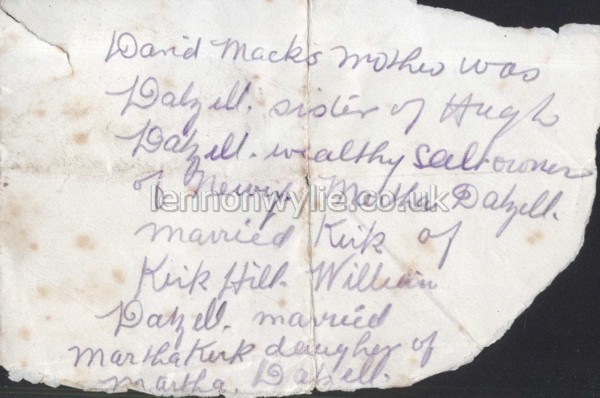 David Macks Mother was
Dalzell. sister of Hugh
Dalzell. wealthy Saltowner
of Newry. Martha Dalzell.
lennonwylie.co.uk
married Kirk of
Kirk Hill. William
Dalzell. married
Martha Kirk daugher of
Martha. Dalzell.